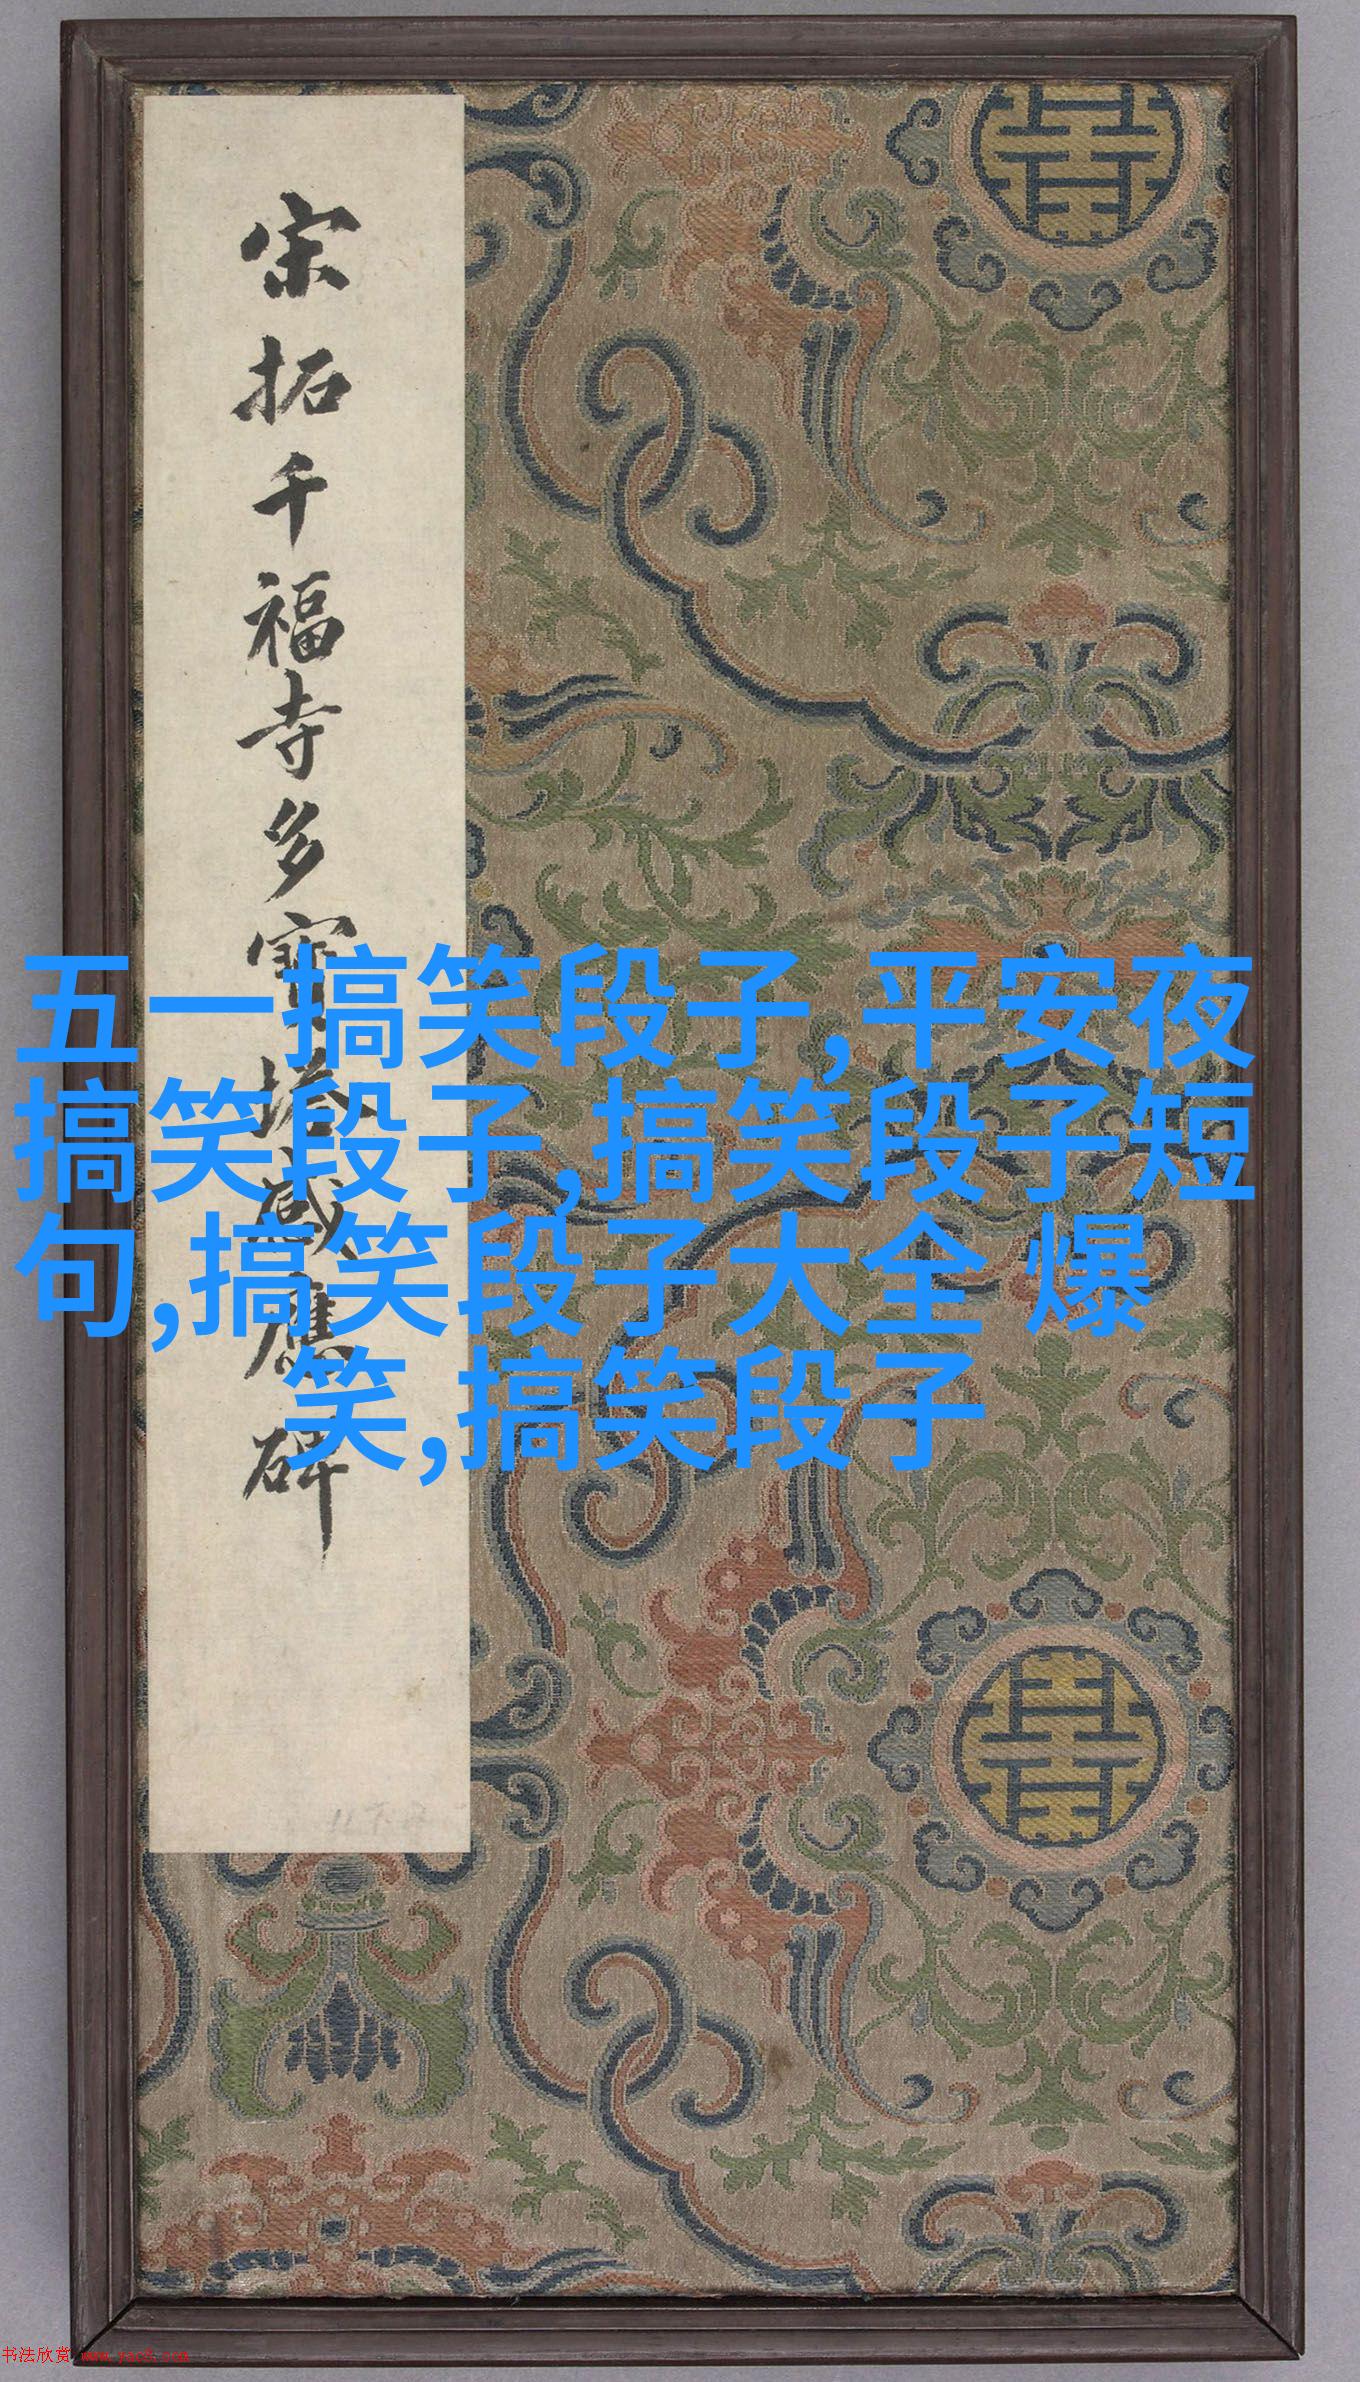 宋拓千福寺多寶塔感應碑
五一搞笑段子,平安夜
搞笑段子,搞笑段子短
句,搞笑段子大全 爆
笑,搞笑段子
书法欣赏 www.yac8.com